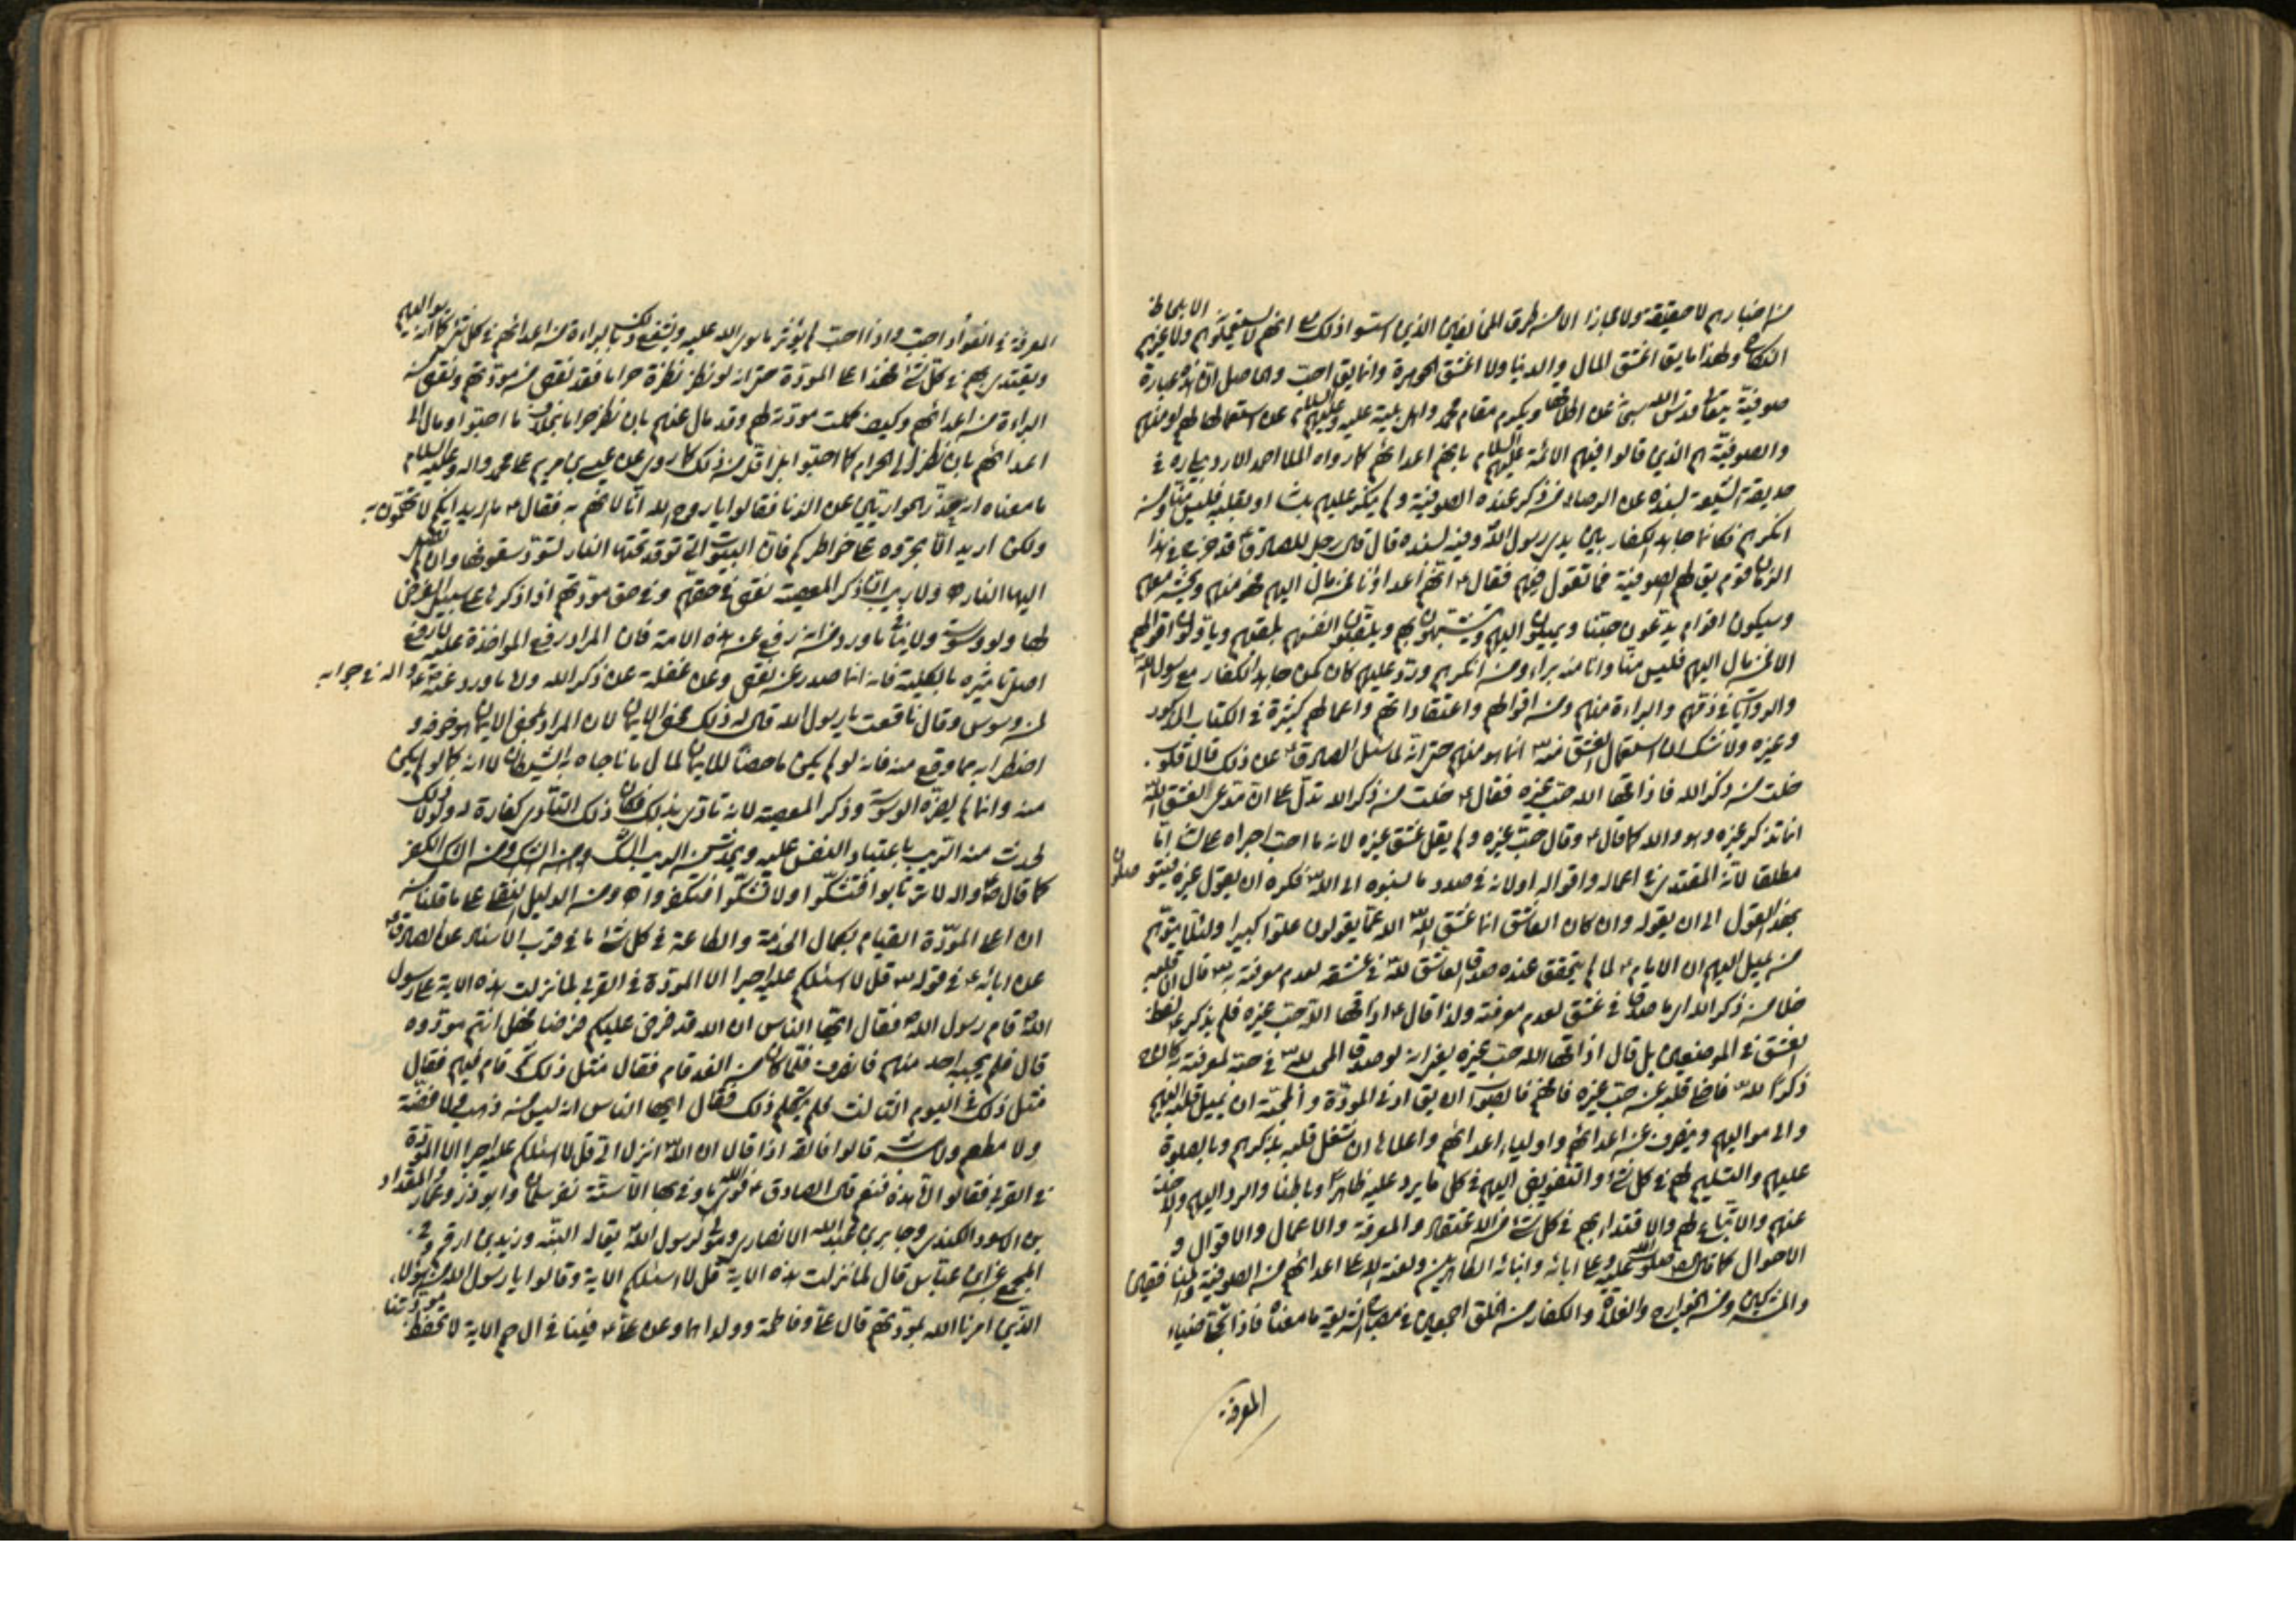 من اخبارهم لا حقيقة ولا مجازا الا من طرق المخالفين الذين استسوا ذلك مع انهم لا يستعملونه ولا غيرهم الا بلحاظ
النكاح ولهذا ما يق اعشق المال والدنيا ولا اعشق الجوهرة وانما يق احب والحاصل ان هذه عبارة
صوفية يتقدس الله سبحانه عن اطلاقها ويكرم مقام محمد واهل بيته عليه وعليهم السلام عن استعمالها لهم او منهم
والصوفية هم الذين قالوا فيهم الائمة عليهم السلام بانهم اعدائهم كما رواه الملا احمد الاردبيلي ره في
حديقة الشيعة بسنده عن الرضا من ذكر عنده الصوفية ولم ينكر عليهم بلسانه او بقلبه فليس منا ومن
انكرهم فكانما جاهد الكفار بين يدي رسول الله وفيه بسنده قال قال رجل للصادق قد خرج في هذا
الزمان قوم يق لهم الصوفية فما تقول فيهم فقال انهم اعداؤنا فمن مال اليهم فهو منهم ويحشر معهم
وسيكون اقوام يدعون حبنا ويميلون اليهم ويتشبهون بهم ويلقبون انفسهم بلقبهم وياولون اقوالهم
الا فمن مال اليهم فليس منا وانا منه براء ومن انكرهم ورد عليهم كان كمن جاهد الكفار مع رسول الله
والروايات في ذمهم والبراءة منهم ومن اقوالهم واعتقاداتهم واعمالهم كثيرة في الكتاب المذكور
وغيره ولا شك ان استعمال العشق انما هو منهم حتى انه لما سئل الصادق عن ذلك قال قلوب
خلت من ذكر الله فاذاقها الله حب غيره فقال خلت من ذكر الله تدل على ان مدعي العشق لله
انما تذكر غيره وهو والله كما قال وقال حب غيره ولم يقل عشق غيره لانه ما احب اجراه على لسانه اما
مطلقا لانه المقتدى في اعماله واقواله او لانه في صدد ما نسبوه الى الله فكره ان يقول غيره
بهذا القول الى ان يقوله وان كان العاشق انما عشق لله الله عما يقولون علوا كبيرا ولئلا يتوهم
من يميل اليهم ان الامام لما لم يتحقق عنده صدق العاشق لله في عشقه لعدم معرفته به قال ان قلبه
خلا من ذكر الله اي ما صدق في عشق لعدم معرفته ولذا قال اذاقها الله حب غيره فلم يذكر لفظ
العشق في الموضعين بل قال اذاقها الله حب غيره
ذكرا لله فاخا قلبه عن حب غيره فافهم فالصواب ان يق ادنى المودة والمحبة ان يميل قلبه اليهم
والى مواليهم وينحرف عن اعدائهم واولياء اعدائهم واعلاها ان تشغل قلبه بذكرهم وبالصلوة
عليهم والتسليم لهم في كل شئ والتفويض اليهم في كل ما يرد عليه ظاهرا وباطنا والرد اليهم والاخذ
عنهم والاتباع لهم والاقتداء بهم في كل شئ من الاعتقاد والمعرفة والاعمال والاقوال و
الاحوال كما قال صلوات الله عليه وعلى ابائه وابنائه الطاهرين ولعنة الله على اعدائهم من الصوفية والمنافقين
والمشركين ومن الخوارج والغلاة والكفار من الخلق اجمعين في مصباح الشريعة ما معناه فاذا تجلى ضياء
المعرفة
المعرفة في الفؤاد احب واذا احب لم يؤثر ما سوى الله عليه وبالبراءة من اعدائهم في كل شئ
ويقتدى بهم في كل شئ فهذا اعلى المودة حتى انه لو نظر نظرة حراما فقد نقص من مودتهم ونقص من
البراءة من اعدائهم وكيف كملت مودته لهم وقد مال عنهم بان نظر حراما بخلاف ما احبوا ومال الى
اعدائهم بان نظر الى الحرام كما احبوا بل اقل من ذلك كما روي عن عيسى بن مريم على محمد واله وعليه السلام
ما معناه انه حذر الحواريين عن الزنا فقالوا يا روح الله انا لا نهم به فقال ما اريد انكم لا تهمون به
ولكن اريد الا تجروه على خواطركم فان البيوت التي توقد تحتها النار لتسود سقوفها وان لم تصل
اليها النار ولا ريب ان ذكر المعصية نقص في حقهم وفي حق مودتهم اذا ذكر لا على سبيل البغض
لها ولو وسوسة ولا ينافي ما ورد من انه رفع عن هذه الامة فان المراد رفع المؤاخذة عليه لا رفع
اصل تاثيره بالكلية فانه انما صدر عن نقص وعن غفلة عن ذكر الله ولا ما ورد عنه واله في جوابه
لمن وسوس وقال نافقت يا رسول الله قال له ذلك محض الايمان لان المراد بمحض الايمان هو خوفه و
اضطرابه مما وقع منه فانه لو لم يكن ماحضا للايمان لمال ما ناجاه به الشيطان لانه كما لو لم يكن
منه وانما لم يضره الوسوسة وذكر المعصية لانه تاذى بذلك فكان ذلك التاذي كفارة له ولولا ذلك
لحدث منه الريب باعتياد النفس عليه ويحدث من الريب الشك ومن الشك الكفر
كما قال واله لا ترتابوا فتشكوا ولا تشكوا فتكفروا ومن الدليل النقلي على ما قلنا من
ان اعلى المودة القيام بكمال الخدمة والطاعة في كل شئ ما في قرب الاسناد عن الصادق
عن ابائه في قوله قل لا اسئلكم عليه اجرا الا المودة في القربى لما نزلت هذه الاية على رسول
الله قام رسول الله فقال ايها الناس ان الله قد فرض عليكم فرضا فهل انتم مودوه
قال فلم يجبه احد منهم فانصرف فلما كان من الغد قام فقال مثل ذلك ثم قام فيهم فقال
مثل ذلك في اليوم الثالث فلم يتكلم ذلك فقال ايها الناس انه ليس من ذهب ولا فضة
ولا مطعم ولا مشرب قالوا فالقه اذا قال ان الله انزل الي قل لا اسئلكم عليه اجرا الا المودة
في القربى فقالوا اما هذه فنعم قال الصادق فوالله ما وفى بها الا سبعة نفر سلمان وابو ذر وعمار والمقداد
بن الاسود الكندي وجابر بن عبد الله الانصاري ومولى لرسول الله يقال له البته وزيد بن ارقم وفي
المجمع عن ابن عباس قال لما نزلت هذه الاية قل لا اسئلكم الاية وقالوا يا رسول الله من هؤلاء
الذين امرنا الله بمودتهم قال علي وفاطمة وولداهما وعن علي فينا في ال حم الاية لا يحفظ مودتنا